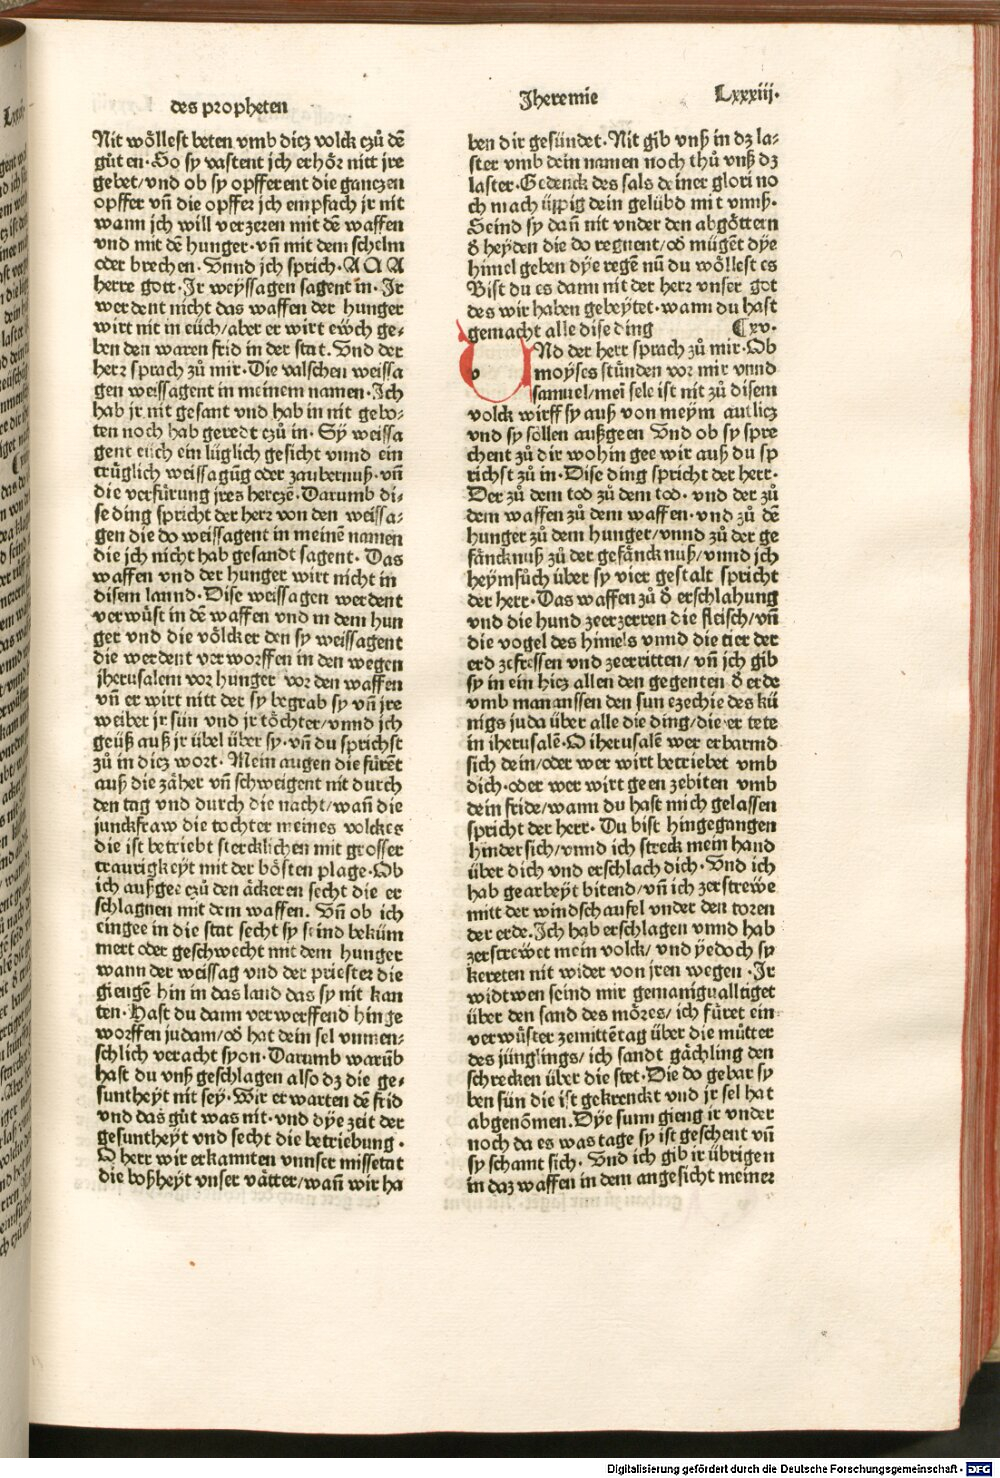 des propheten
Nit wöllest beten vmb dicz volck czů dē
gůten·So sy vastent jch erhör nitt jre
gebet/vnd ob sy opfferent die ganczen
opffer vn̄ die opffer jch empfach jr nit
wann jch will verzeren mit dē waffen
vnd mit dē hunger·vn̄ mit dem schelm
oder brechen. Vnnd jch sprich·A A A
herre gott·Ir weÿssagen sagent in·Ir
werdent nicht das waffen der hunger
wirt nit in eüch/aber er wirt ewch ge⸗
ben den waren frid in der stat. Vnd der
herr sprach zů mir·Die valschen weissa
gen weissagent in meinem namen·Ich
hab jr nit gesant vnd hab in nit gebo⸗
ten noch hab geredt czů in· Sÿ weissa
gent euch ein lüglich gesicht vnnd ein
trüglich weissagūg oder zaubernuß·vn̄
die verfürung jres herczē·Darumb di⸗
se ding spricht der herr von den weissa⸗
gen die do weissagent in meinē namen
die jch nicht hab gesandt sagent· Das
waffen vnd der hunger wirt nicht in
disem lannd·Dise weissagen werdent
verwüst in dē waffen vnd in dem hun
ger vnd die völcker den sy weissagent
die werdent verworffen in den wegen
jherusalem vor hunger vor den waffen
vn̄ er wirt nitt der sy begrab sy vn̄ jre
weiber jr sün vnd jr töchter/vnnd jch
geüß auß jr übel über sy·vn̄ du sprichst
zů in dicz wort·Mein augen die fürēt
auß die zäher vn̄ schweigent nit durch
den tag vnd durch die nacht/wan̄ die
junckfraw die tochter meines volckes
die ist betriebt stercklichen mit grosser
traurigkeyt mit der bösten plage·Ob
ich außgee czů den äckeren secht die er
schlagnen mit dem waffen. Vn̄ ob ich
eingee in die stat secht sy seind beküm
mert oder geschwecht mit dem hunger
wann der weissag vnd der priester die
giengē hin in das land das sy nit kan
ten·Hast du dann verwerffend hinge
worffen judam/oď hat dein sel vnmen⸗
schlich veracht syon·Darumb warūb
hast du vnß geschlagen also dz die ge⸗
suntheyt nit seÿ·Wir erwarten dē frid
vnd das gůt was nit·vnd dÿe zeit der
gesuntheÿt vnd secht die betriebung·
O herr wir erkannten vnnser missetat
die boßheyt vnser vätter/wan̄ wir ha
Jheremie
Lxxxiij·
ben dir gesündet·Nit gib vnß in dz la⸗
ster vmb dein namen noch thů vnß dz
laster·Gedenck des sals deiner glori no
ch mach üppig dein gelübd mit vnnß·
Seind sy dan̄ nit vnder den abgöttern
ď heyden die do regnent/oď mügēt dÿe
himel geben dÿe regē nū du wöllest es
Bist du es dann nit der herr vnser got
des wir haben gebeÿtet·wann du hast
gemacht alle dise ding ¶xv·
VNd der herr sprach zů mir·Ob
v moÿses stünden vor mir vnnd
samuel/mei sele ist nit zů disem
volck wirff sy auß von meÿm antlicz
vnd sy söllen außgeen Vnd ob sy spre
chent zů dir wohin gee wir auß du sp
richst zů in·Dise ding spricht der herr·
Der zů dem tod zů dem tod· vnd der zů
dem waffen zů dem waffen·vnd zů dē
hunger zů dem hunger/vnnd zů der ge
fäncknuß zů der gefäncknuß/vnnd jch
heÿmsůch über sy vier gestalt spricht
der herr·Das waffen zů ď erschlahung
vnd die hund zeerzerren die fleisch/vn̄
die vogel des himels vnnd die tier der
erd zefressen vnd zeerritten/ vn̄ jch gib
sy in ein hicz allen den gegenten ď erde
vmb mananssen den sun ezechie des kü
nigs juda über alle die ding/die er tete
in iherusalē·O iherusalē wer erbarmd
sich dein/oder wer wirt betriebet vmb
dich·oder wer wirt geen zebiten vmb
dein fride/wann du hast mich gelassen
spricht der herr· Du bist hingegangen
hindersich/vnnd ich streck mein hand
über dich vnd erschlach dich·Vnd ich
hab gearbeyt bitend/vn̄ ich zerstrewe
mitt der windschaufel vnder den toren
der erde.Ich hab erschlagen vnnd hab
zerstrewet mein volck/ vnd ÿedoch sy
kereten nit wider von jren wegen·Ir
widtwen seind mir gemanigualltiget
über den sand des möres/ ich füret ein
verwüster zemittētag über die mütter
des jünglings/ich sandt gächling den
schrecken über die stet·Die do gebar sy
ben sün die ist gekrenckt vnd jr sel hat
abgenōmen.Dÿe sunn gieng ir vnder
noch da es was tage sy ist geschent vn̄
sy schamt sich. Vnd ich gib ir übrigen
in daz waffen in dem angesicht meiner
Digitalisierung gefördert durch die Deutsche Forschungsgemeinschaft - DFG